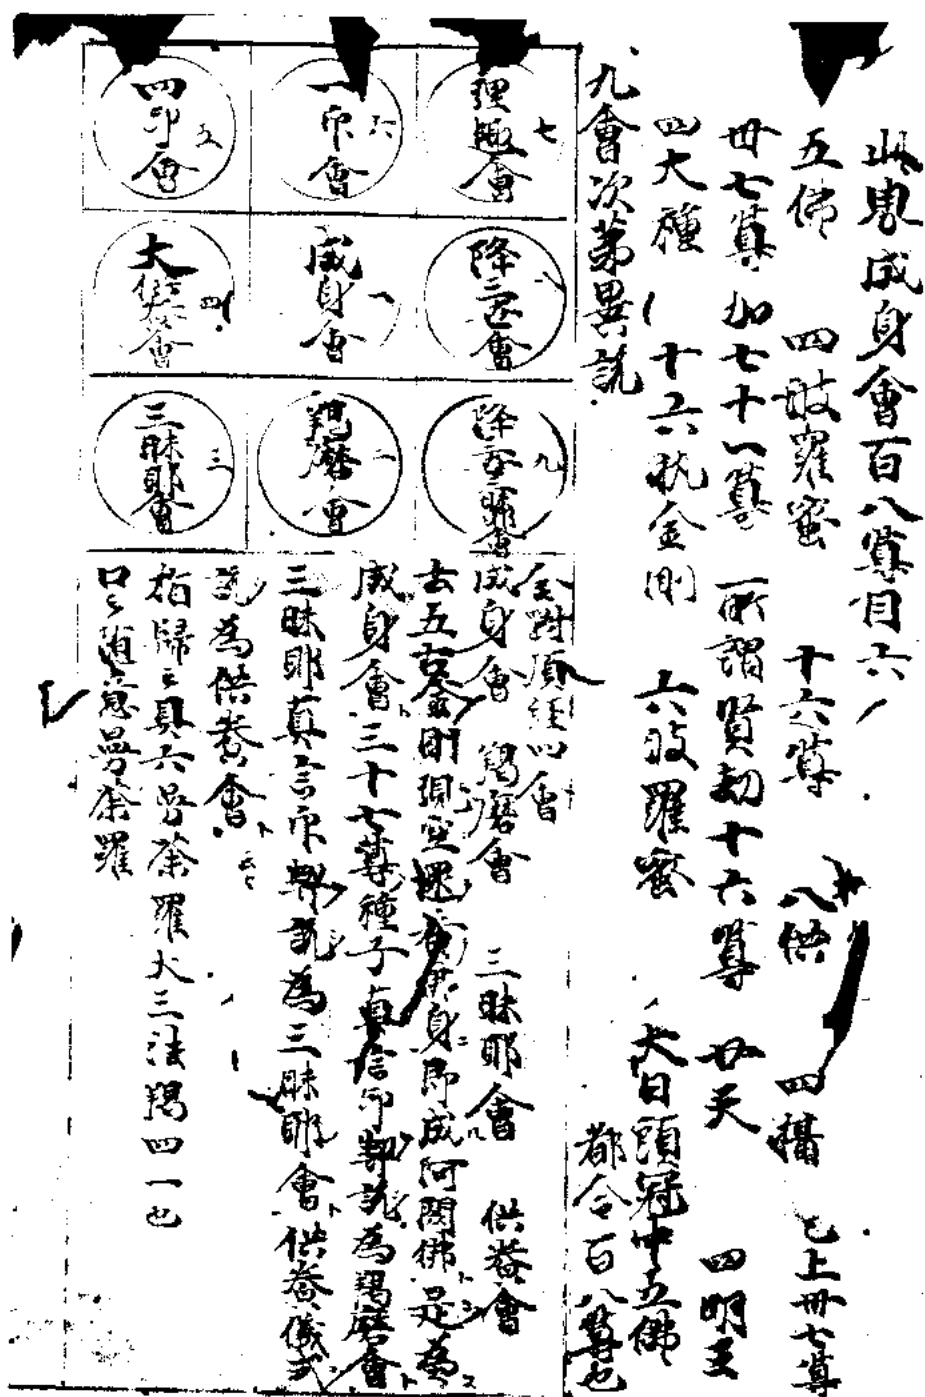 成身會百八尊目六
五佛 四波羅蜜 十六尊 八供 四攝 已上卅七尊
卅七尊 加七十一尊 所謂賢劫十六尊 廿天 四明王
四大種 十六執金剛 六波羅蜜 大日頭冠中五佛
都合百八尊也
九會次第異説
理趣會 七
一印會 六
四印會 五
降三世會 八
成身會 一
大供養會 四
降三世三昧耶會 九
羯磨會 二
三昧耶會 三
金剛頂經四會
成身會 羯磨會 三昧耶會 供養會
去五古金剛現空 身即成阿閦佛是為
成身會ト三十七尊種子真言印契説為羯磨會ト
三昧耶真言印契説為三昧耶會ト供養儀式
説為供養會ト
指歸云具六曼荼羅大三法羯四一也
曼荼羅